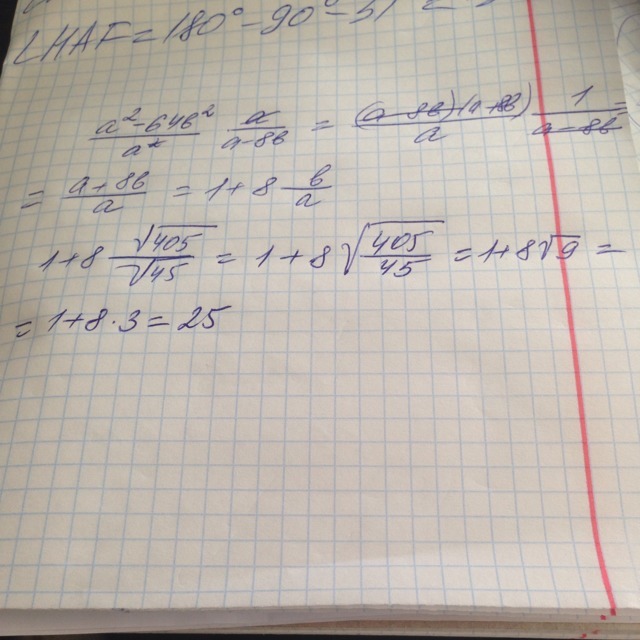 ∠HAF = 180° - 90° - 51
(a² - 64b²)/a² · a/(a - 8b) = ((a - 8b)(a + 8b))/a · 1/(a - 8b) =
= (a + 8b)/a = 1 + 8 b/a
1 + 8 √405/√45 = 1 + 8 √(405/45) = 1 + 8√9 =
= 1 + 8 · 3 = 25